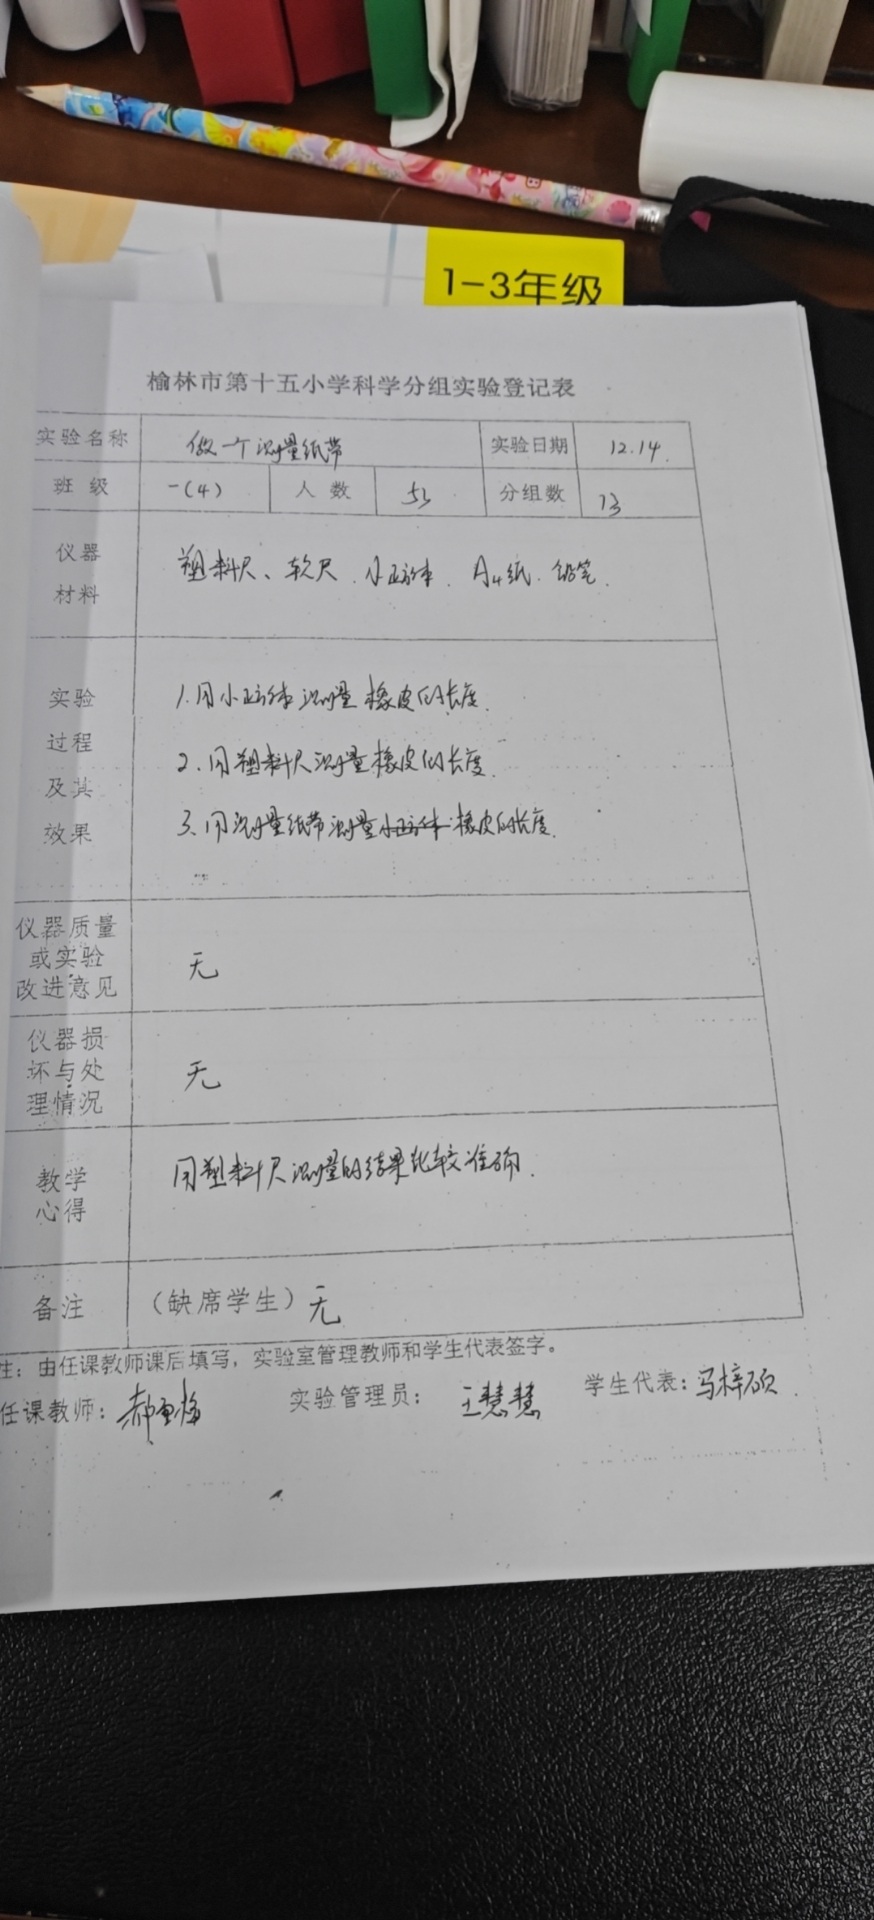 1-3年级
榆林市第十五小学科学分组实验登记表
实验名称 做一个测量纸带 实验日期 12.14.
班级 一(4) 人数 53 分组数 13
仪器材料 塑料尺、软尺.小正方体.A4纸.铅笔.
实验过程及其效果
1.用小正方体测量橡皮的长度.
2.用塑料尺测量橡皮的长度.
3.用测量纸带测量小正方体橡皮的长度.
仪器质量或实验改进意见 无
仪器损坏与处理情况 无
教学心得 用塑料尺测量的结果比较准确.
备注 (缺席学生) 无
注：由任课教师课后填写，实验室管理教师和学生代表签字。
任课教师： 实验管理员：王慧慧 学生代表：冯梓硕